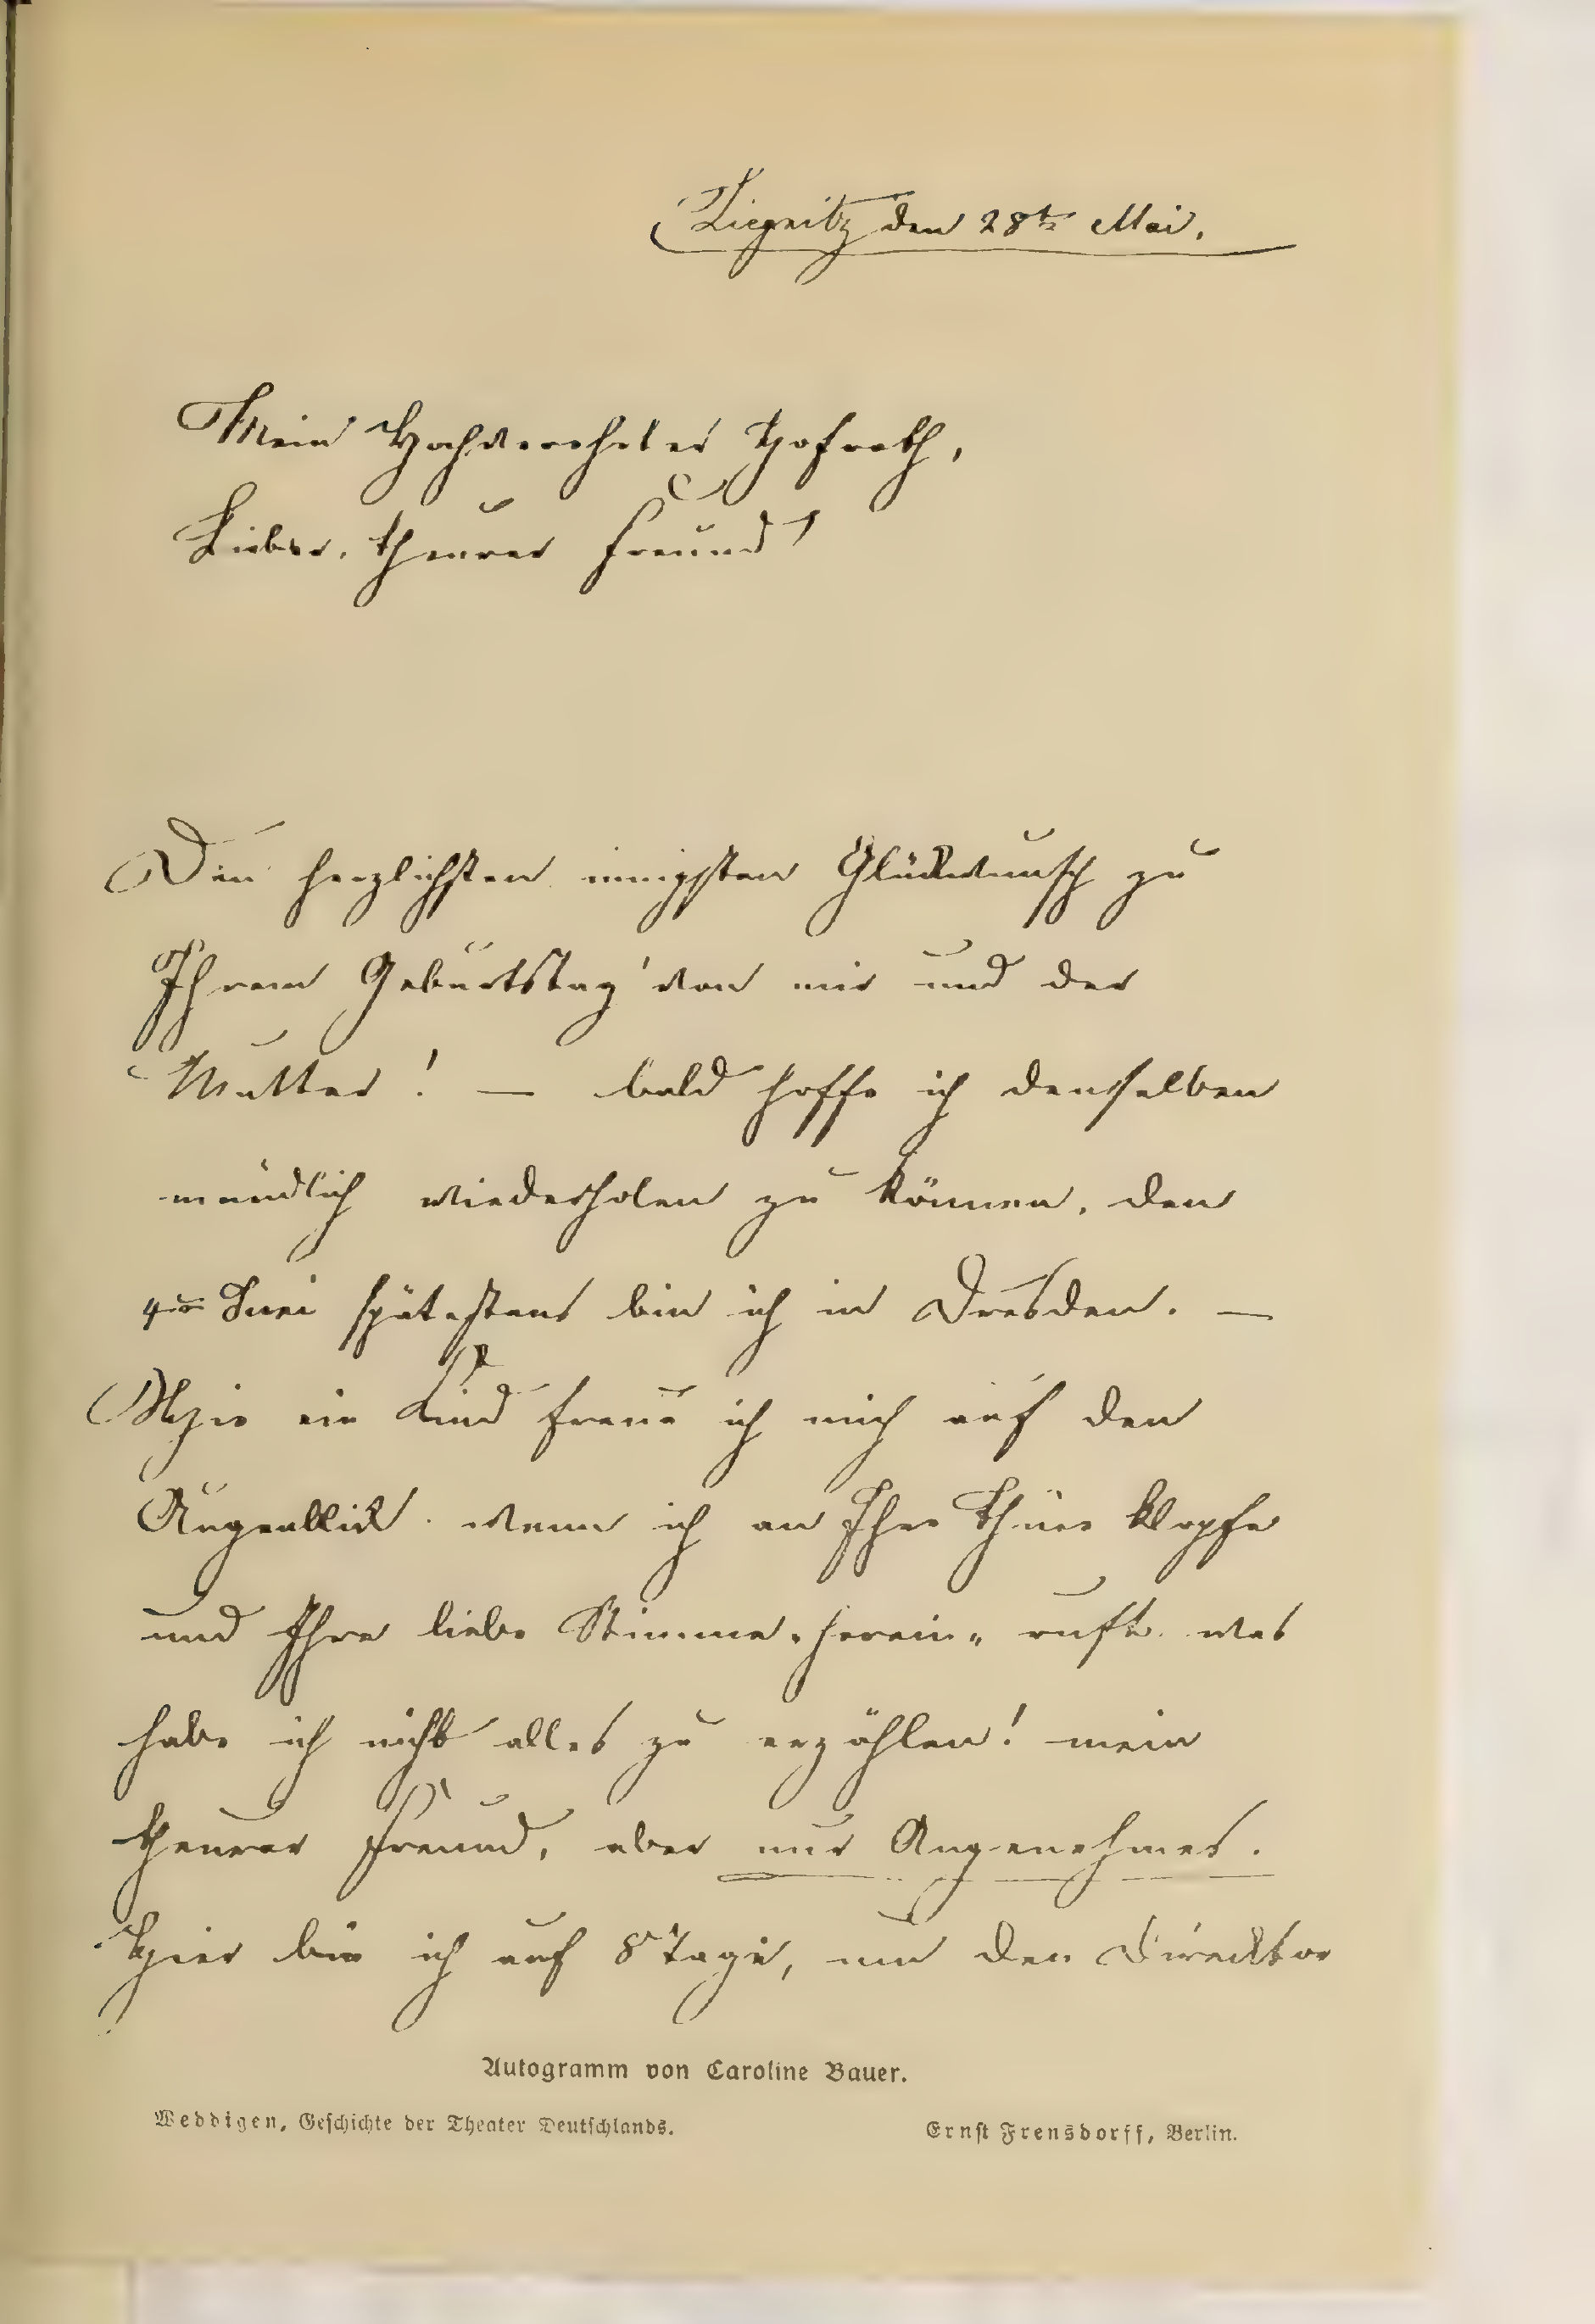 Liegnitz den 28ten Mai.
Mein Hochverehrter Hofrath,
Lieber, theurer Freund!
Den herzlichsten innigsten Glückwunsch zu
Ihrem Geburtstag von mir und der
Mutter! — bald hoffe ich denselben
mündlich wiederholen zu können, den
4ten Juni spätestens bin ich in Dresden. —
Wie ein Kind freue ich mich auf den
Augenblick wenn ich an Ihre Thüre klopfe
und Ihre liebe Stimme „herein“ ruft. was
habe ich nicht alles zu erzählen! mein
theurer Freund, aber nur Angenehmes.
Hier bin ich auf 8 Tage, um den Direcktor
Autogramm von Caroline Bauer.
Weddigen, Geschichte der Theater Deutschlands.
Ernst Frensdorff, Berlin.